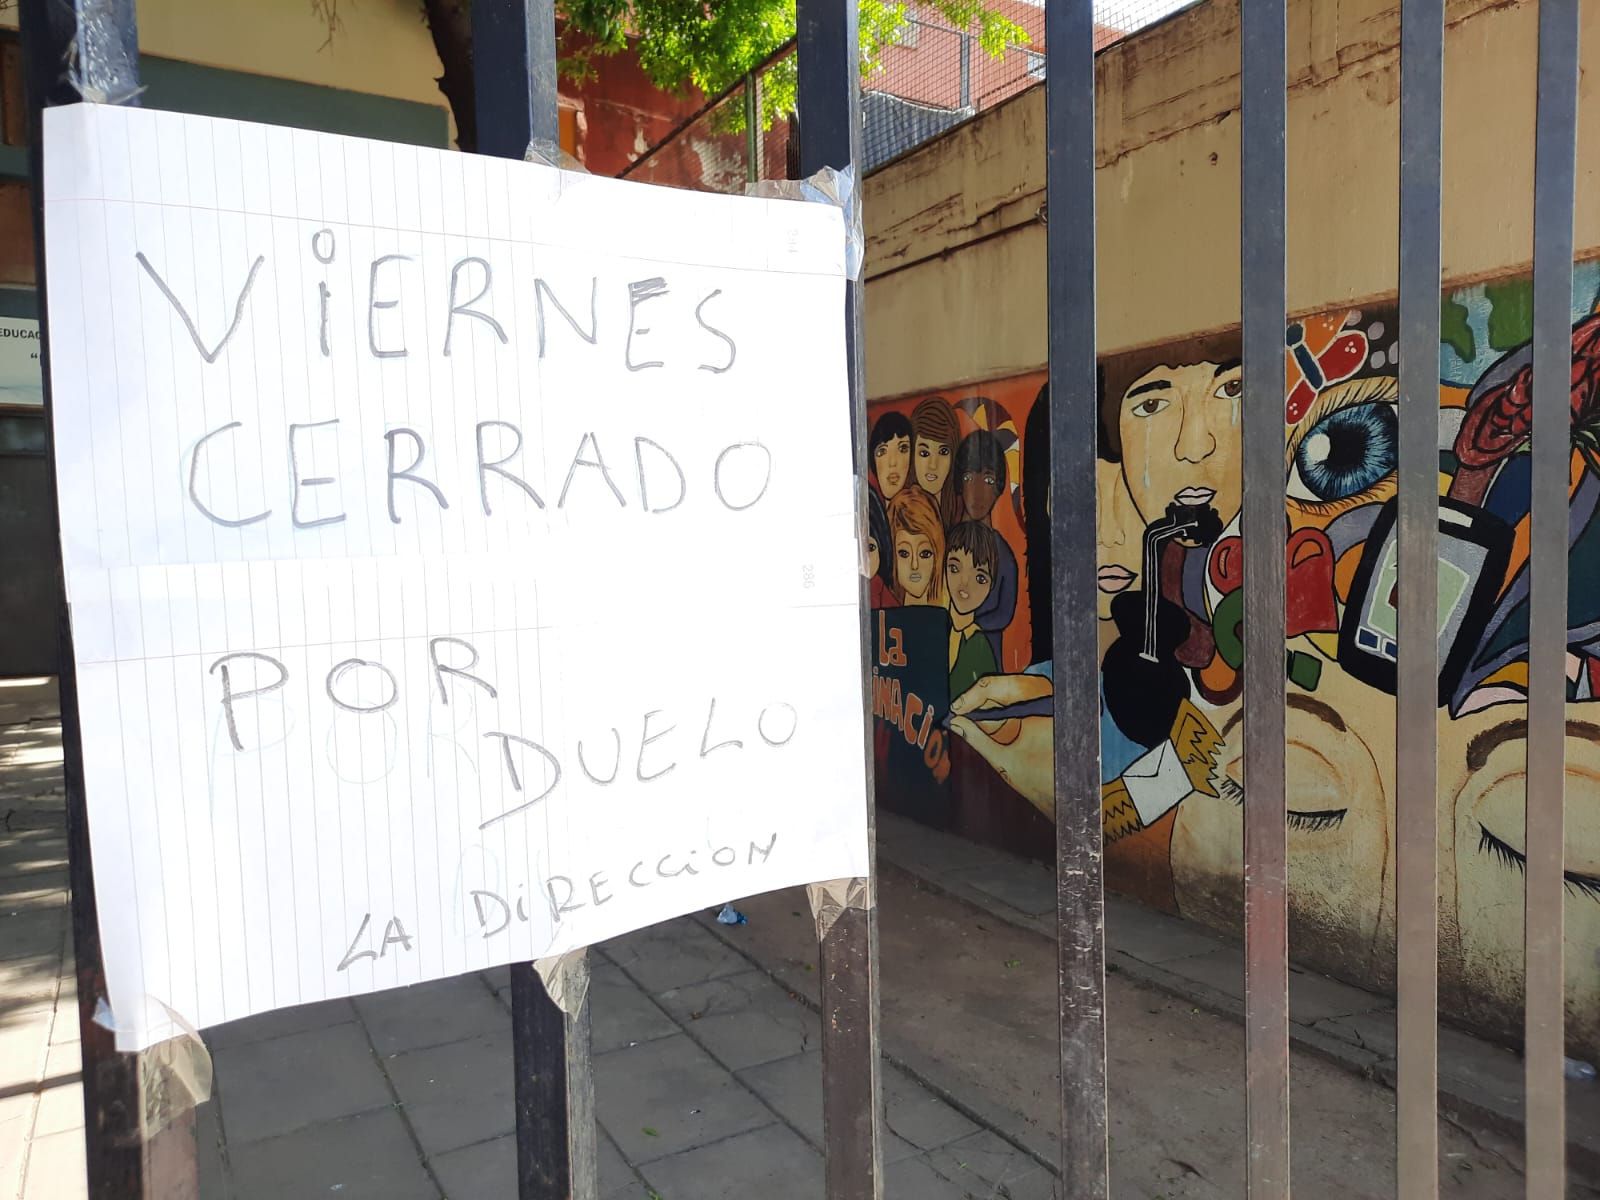 ViERNES
CERRADO
POR
DUELO
LA DiRECCiON
EDUCAC
286
la
iNACiO